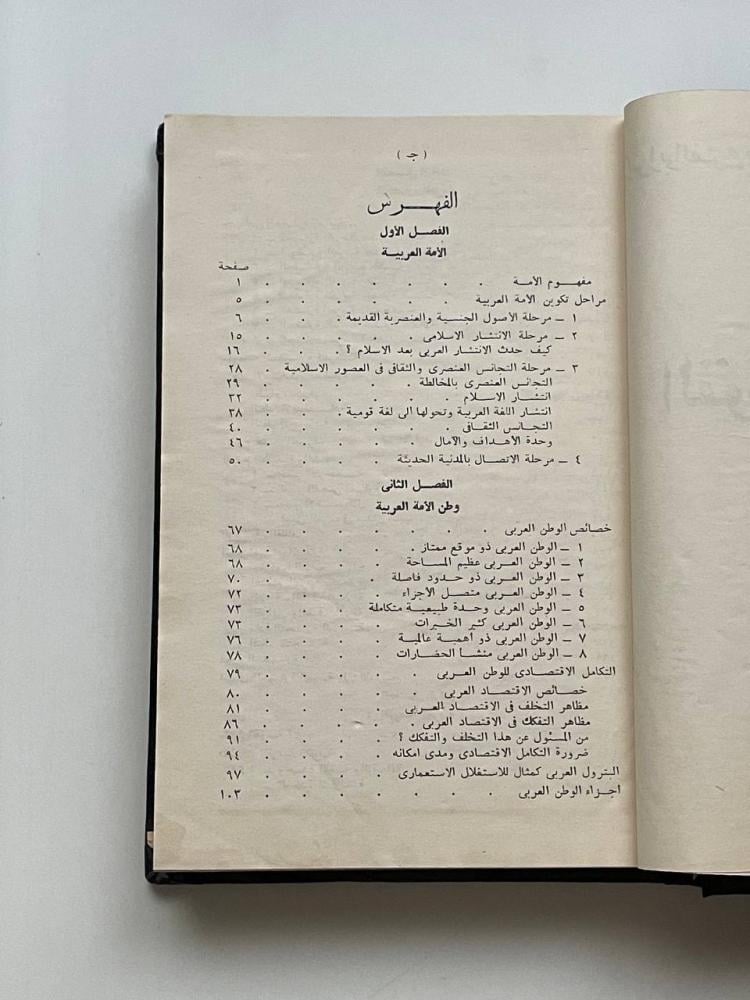 ( جـ )
الفهـــرس
الفصـل الأول
الأمة العربيـة
صفحة
مفهـوم الأمـة . . . . . . . ١
مراحل تكوين الأمة العربية . . . . . . ٥
١ ــ مرحلة الأصول الجنسية والعنصرية القديمة . . . ٦
٢ ــ مرحلة الانتشار الاسلامى . . . . . ١٥
كيف حدث الانتشار العربى بعد الاسلام ؟ . . . . ١٦
٣ ــ مرحلة التجانس العنصرى والثقافى فى العصور الاسلامية . ٢٨
التجانس العنصرى بالمخالطة . . . . . ٢٩
انتشـار الاسـلام . . . . . . ٣٢
انتشار اللغة العربية وتحولها الى لغة قومية . . . . ٣٨
التجانس الثقـافى . . . . . . ٤٠
وحدة الأهداف والآمال . . . . . . ٤٦
٤ ــ مرحلة الاتصال بالمدنية الحديثة . . . . . ٥٠
الفصـل الثانى
وطن الأمة العربية
خصائص الوطن العربى . . . . . . ٦٧
١ ــ الوطن العربى ذو موقع ممتاز . . . . . ٦٨
٢ ــ الوطن العربى عظيم المسـاحة . . . . . ٦٨
٣ ــ الوطن العـربى ذو حدود فاصلة . . . . . ٧٠
٤ ــ الوطن العربى متصـل الأجزاء . . . . . ٧٢
٥ ــ الوطن العربى وحدة طبيعيـة متكاملة . . . . ٧٣
٦ ــ الوطن العربى كثير الخيرات . . . . . ٧٣
٧ ــ الوطن العربى ذو أهميـة عالميـة . . . . . ٧٦
٨ ــ الوطن العربى منشأ الحضارات . . . . . ٧٨
التكامل الاقتصـادى للوطن العـربى . . . . . ٧٩
خصائص الاقتصاد العربى . . . . . ٨٠
مظاهر التخلف فى الاقتصاد العـربى . . . . . ٨١
مظاهر التفكك فى الاقتصاد العربى . . . . . ٨٦
من المسئول عن هذا التخلف والتفكك ؟ . . . . ٩١
ضرورة التكامل الاقتصادى ومدى امكانه . . . . ٩٤
البترول العربى كمثال للاستغلال الاستعمارى . . . . ٩٧
اجـزاء الوطن العربى . . . . . . ١٠٣